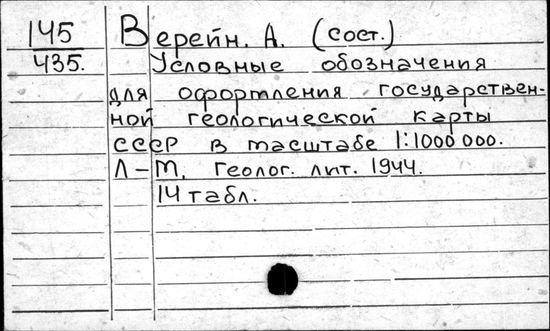 145
435.
Верейн. А. (сост.)
Условные обозначения
для оформления государствен-
ной геологической карты
СССР в масштабе 1:1000 000.
Л-М, Геолог. лит. 1944.
14 табл.